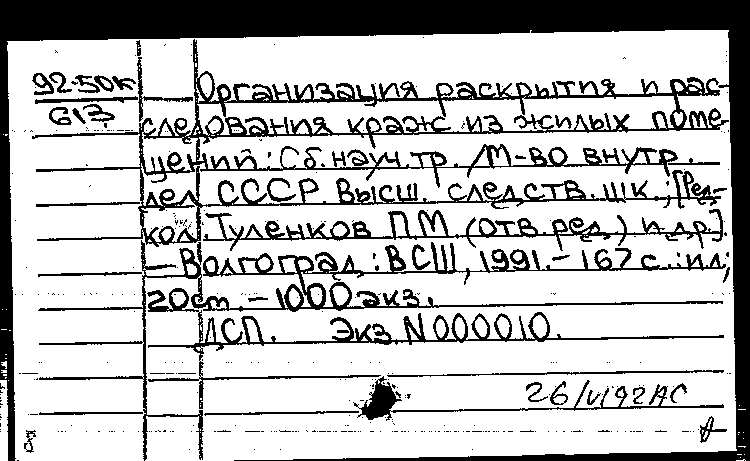 92-50к Организация раскрытия и рас-
G13 следования краж из жилых поме-
щений: Сб. науч. тр. /М-во внутр.
дел СССР. Высш. следств. шк.; [Ред-
кол.: Туленков П.М. (отв. ред.) и др.].
— Волгоград: ВСШ, 1991. - 167 с.: ил;
20 см. - 1000 экз.
ДСП. Экз. N 000010.
26/VI 92 АС
8